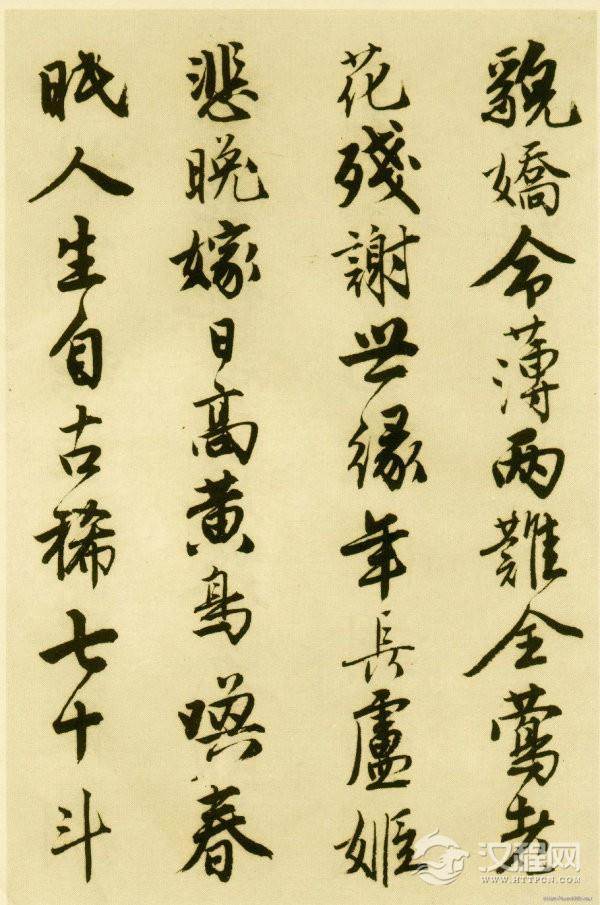 貌嬌命薄两難全鶯老
花殘謝世緣年長盧姬
悲晚嫁日高黄鳥喚春
眠人生自古稀七十斗
汉程网
WWW.HTTPCN.COM